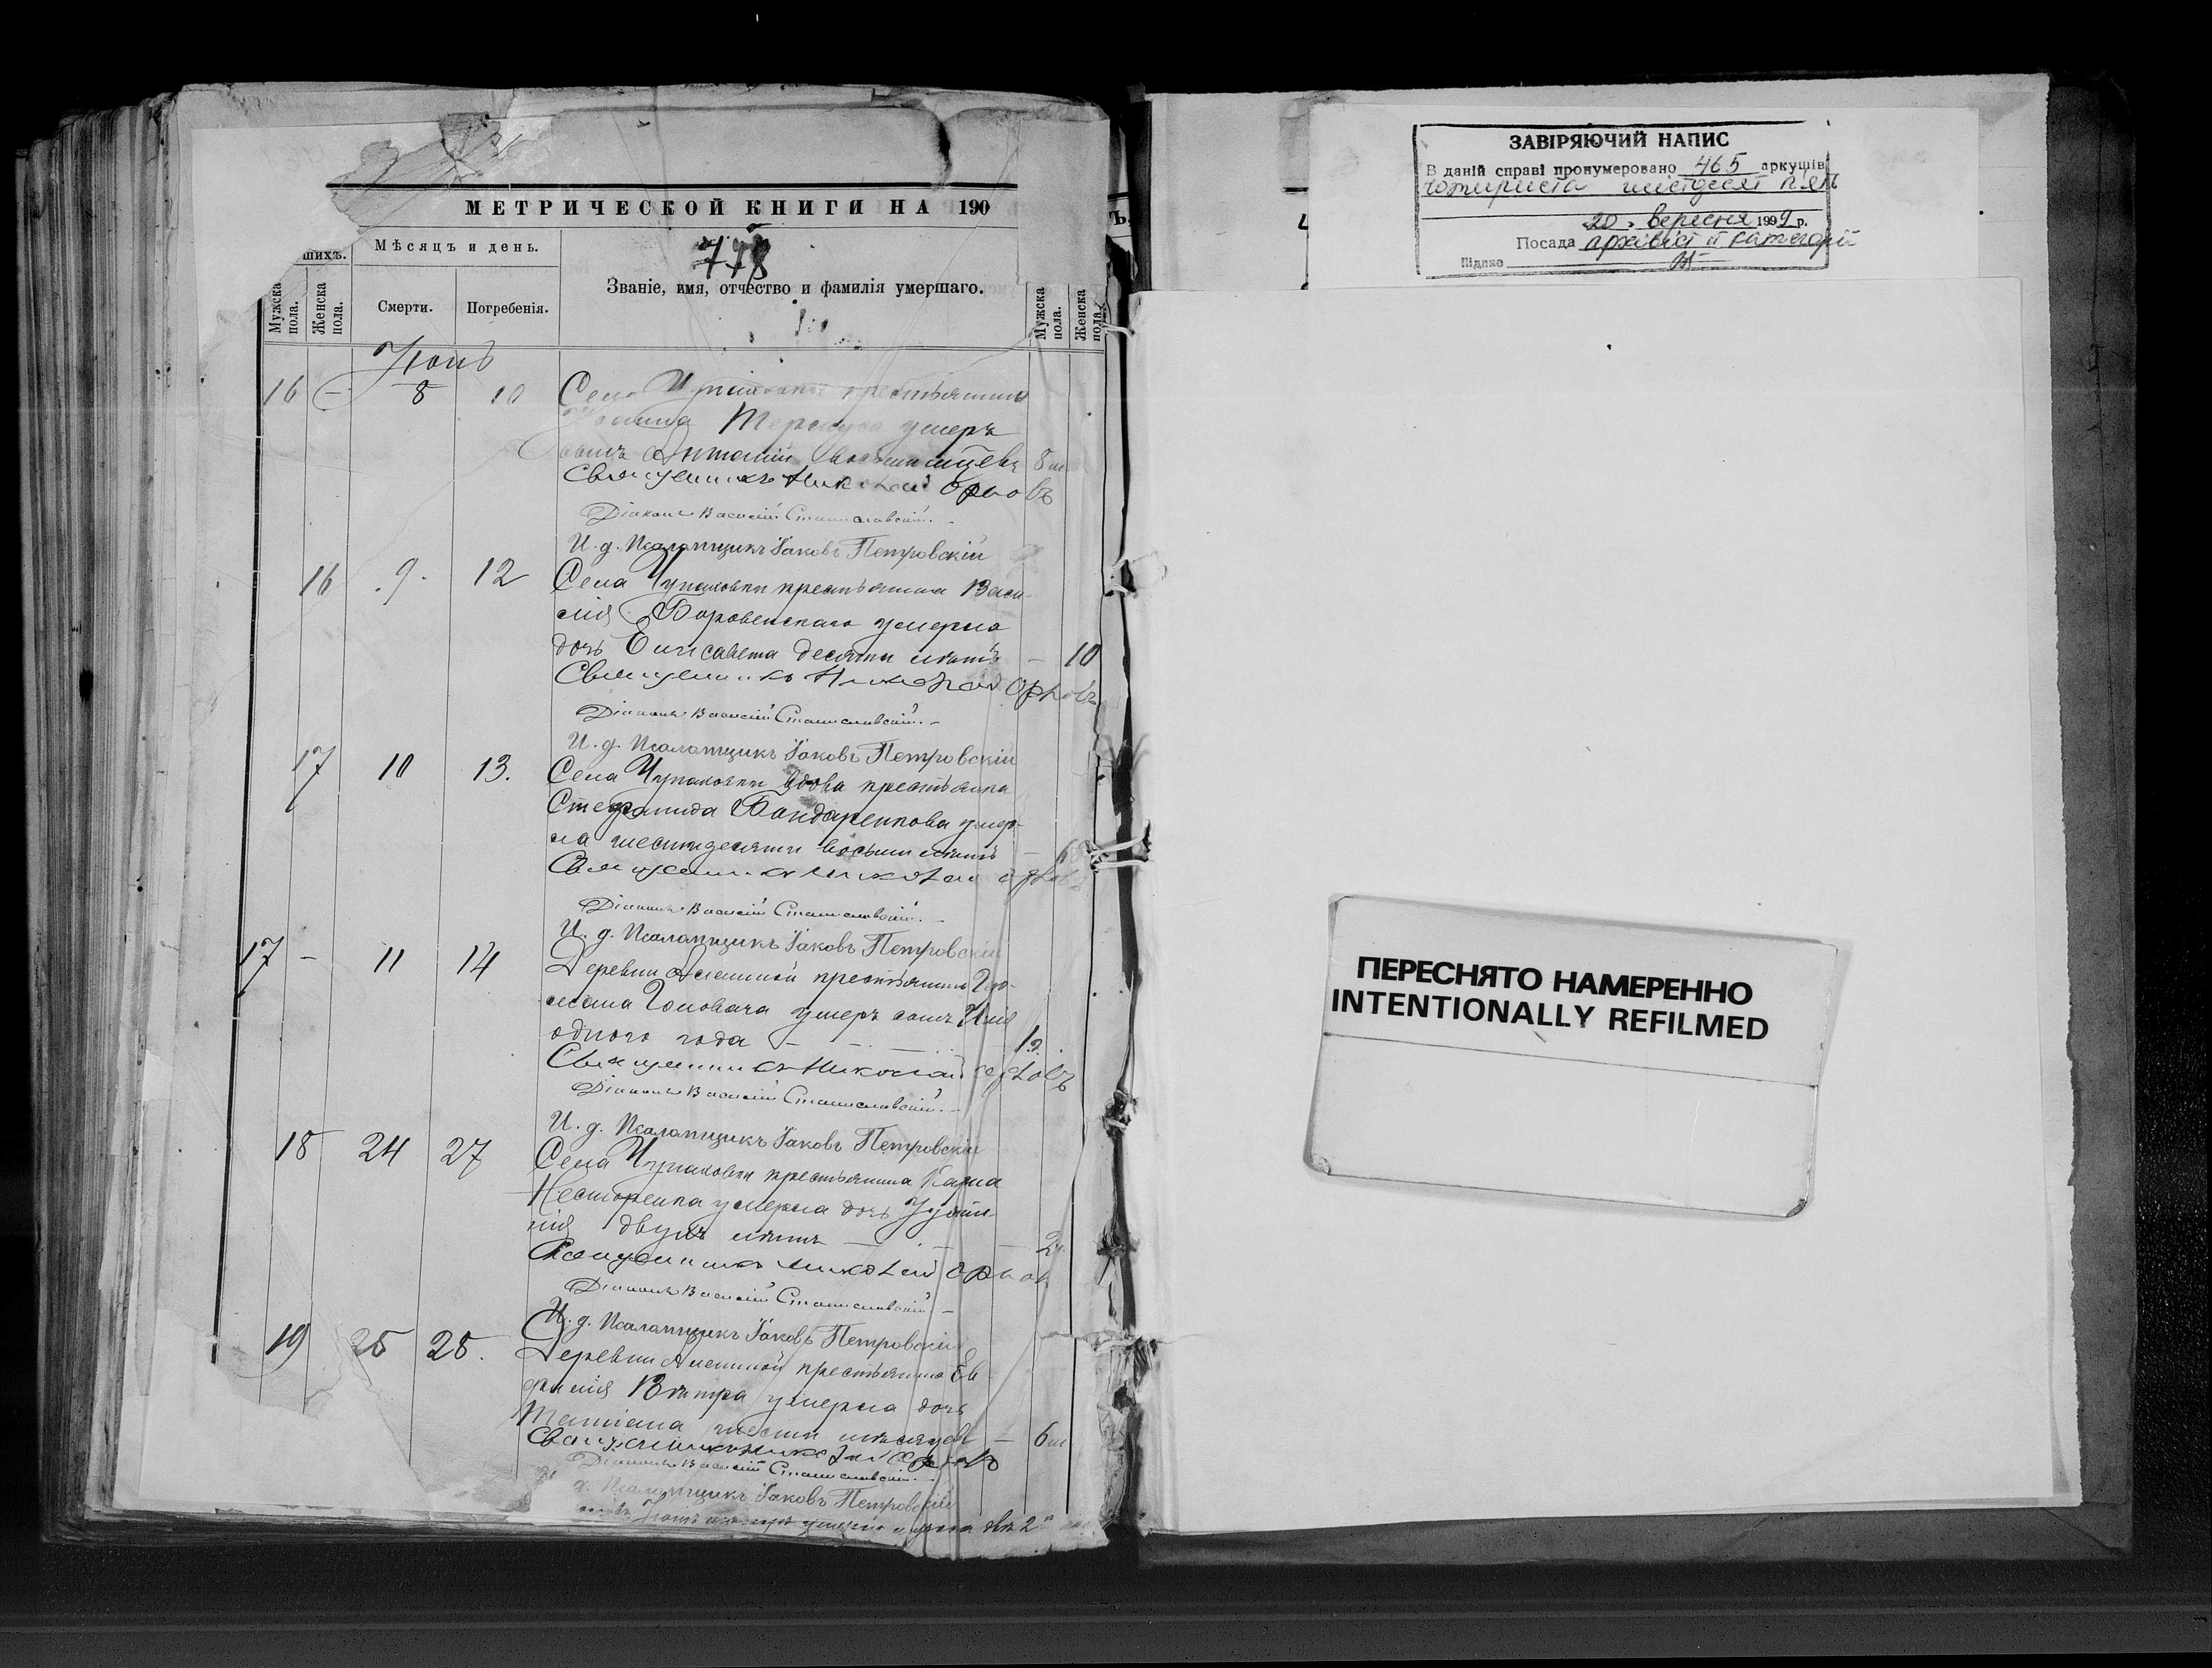 МЕТРИЧЕСКОЙ КНИГИ НА 190
778
шихъ.
Мѣсяцъ и день.
Званіе, имя, отчество и фамилія умершаго.
Мужска пола.
Женска пола.
Смерти.
Погребенія.
Мужска пола.
Женска пола.
Іюнь
16 – 8 10 Села крестьянина
умеръ
сынъ Антоній мѣсяцевъ 8 м
Священникъ Николай Орловъ
Діаконъ Василій Станиславскій.
И. д. Псаломщикъ Іаковъ Петровскій
16 9. 12 Села Чупаховки крестьянина Васи-
лія Боровенскаго умерла
дочь Елисавета десяти лѣтъ – 10
Священникъ Николай Орловъ
Діаконъ Василій Станиславскій. –
И. д. Псаломщикъ Іаковъ Петровскій
17 10 13. Села Чупаховки вдова крестьянка
Стефанида Бондаренкова умер-
ла шестидесяти восьми лѣтъ – 68
Священникъ Николай Орловъ
Діаконъ Василій Станиславскій. –
И. д. Псаломщикъ Іаковъ Петровскій
17 – 11 14 Деревни крестьянина
Головача умеръ сынъ Илія
одного года – – — 1 г.
Священникъ Николай Орловъ
Діаконъ Василій Станиславскій. –
И. д. Псаломщикъ Іаковъ Петровскій
18 24 27 Села Чупаховки крестьянина Карпа
Несторенка умерла дочь Іустин-
нія двухъ лѣтъ — – – 2 г.
Священникъ Николай Орловъ
Діаконъ Василій Станиславскій –
И. д. Псаломщикъ Іаковъ Петровскій
19 25 28. Деревни крестьянина Ев-
фимія Вѣтра умерла дочь
Татіана шести мѣсяцевъ – 6 м
Священникъ Николай Орловъ
Діаконъ Василій Станиславскій. –
д. Псаломщикъ Іаковъ Петровскій
ЗАВІРЯЮЧИЙ НАПИС
В даній справі пронумеровано 465 аркушів
чотириста шістдесят п'ять
20. вересня 1999 р.
Посада архівіст II категорії
Підпис
ПЕРЕСНЯТО НАМЕРЕННО
INTENTIONALLY REFILMED